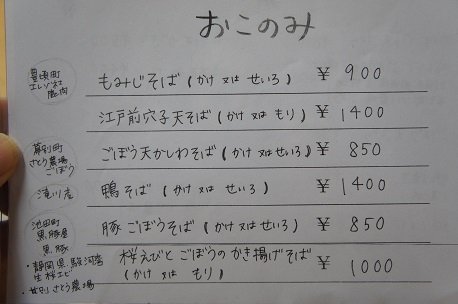 おこのみ
豊頃町
エレゾ社
鹿肉
もみじそば(かけ又はせいろ) ¥ 900
江戸前穴子天そば(かけ又はもり) ¥ 1400
幕別町
さとう農場
ごぼう
ごぼう天かしわそば(かけ又はせいろ) ¥ 850
滝川産
鴨そば(かけ又はせいろ) ¥ 1400
池田町
黒豚屋
黒豚
豚ごぼうそば(かけ又はせいろ) ¥ 850
・静岡県駿河湾
生桜エビ
・幕別さとう農場
桜えびとごぼうのかき揚げそば
(かけ又はもり) ¥ 1000